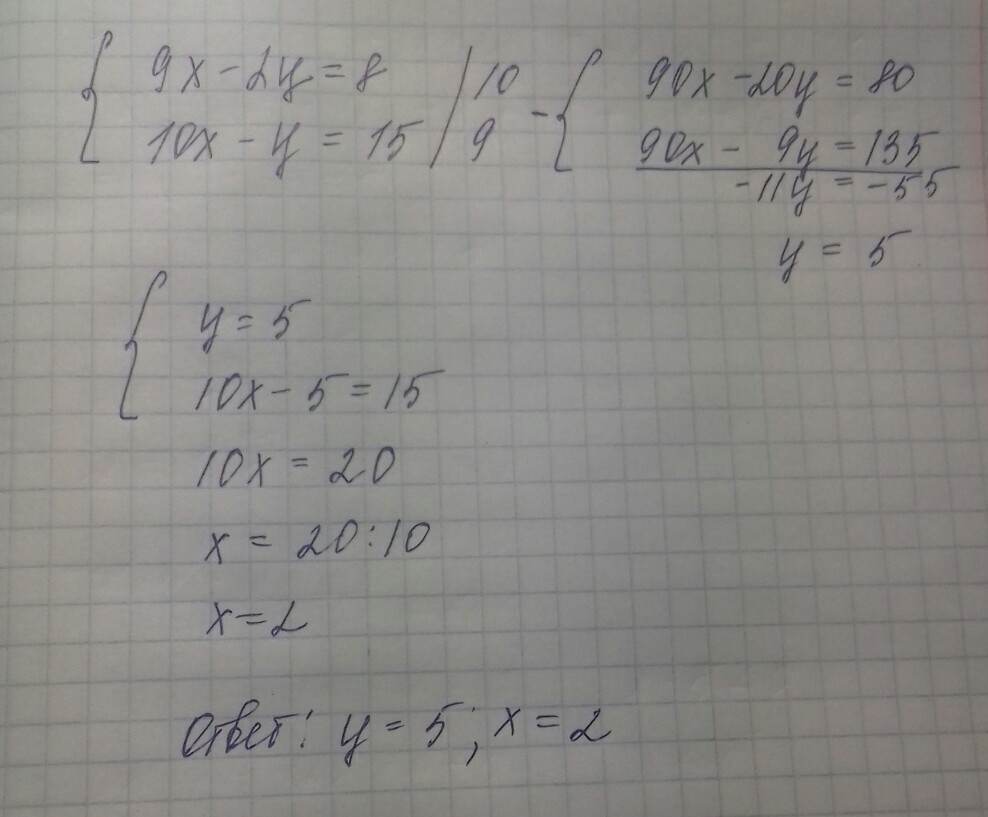 { 9x - 2y = 8 | 10
10x - y = 15 | 9
- { 90x - 20y = 80
90x - 9y = 135
-11y = -55
y = 5
{ y = 5
10x - 5 = 15
10x = 20
x = 20:10
x = 2
Ответ: y = 5; x = 2